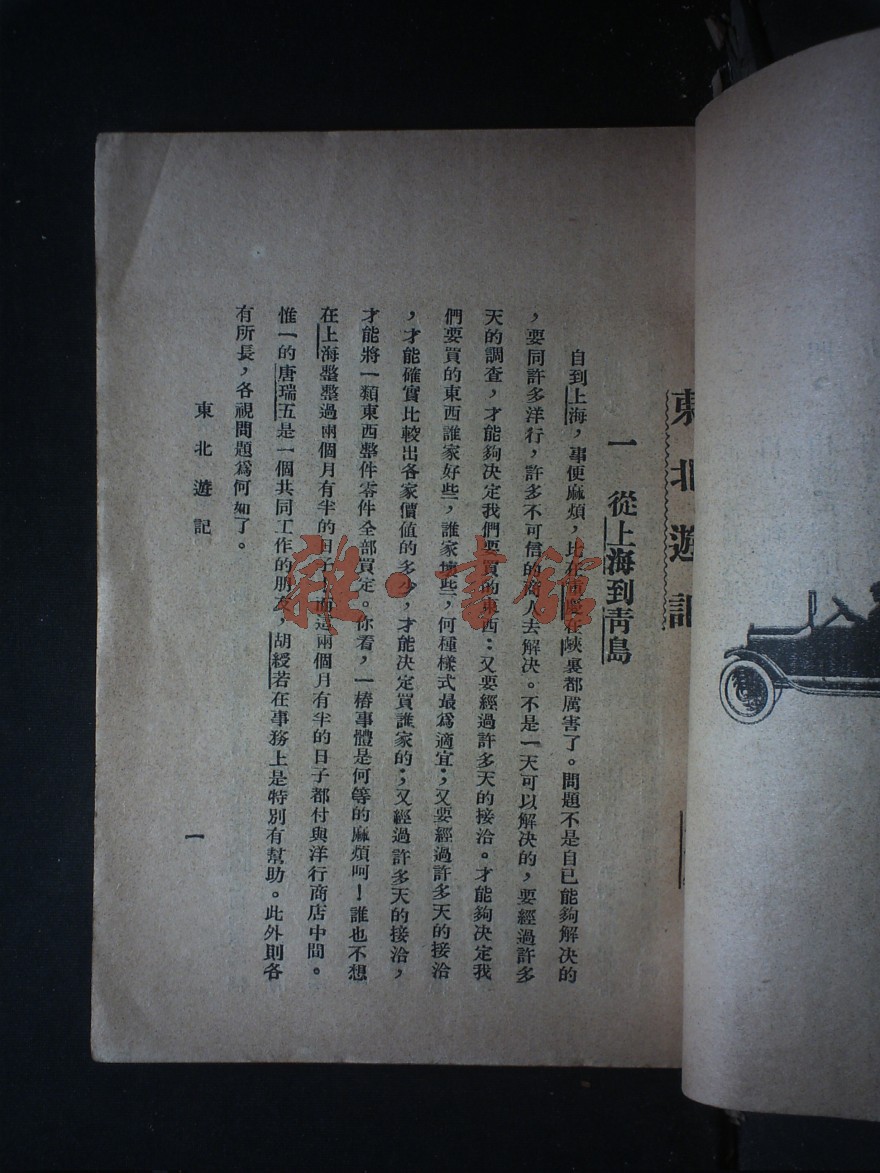 東北遊記
一 從上海到青島
自到上海，事便麻煩，比在重慶在峽裏都厲害了。問題不是自已能夠解决的
，要同許多洋行，許多不可信的商人去解决。不是一天可以解决的，要經過許多
天的調查，才能夠决定我們要買的東西：又要經過許多天的接洽。才能夠决定我
們要買的東西誰家好些，誰家壞些，何種樣式最爲適宜；又要經過許多天的接洽
，才能確實比較出各家價值的多少，才能决定買誰家的；又經過許多天的接洽，
才能將一類東西整件零件全部買定。你看，一樁事體是何等的麻煩呵！誰也不想
在上海整整過兩個月有半的日子，而這兩個月有半的日子都付與洋行商店中間。
惟一的唐瑞五是一個共同工作的朋友，胡綬若在事務上是特別有幫助。此外則各
有所長，各視問題爲何如了。
東北遊記
一
雜·書館